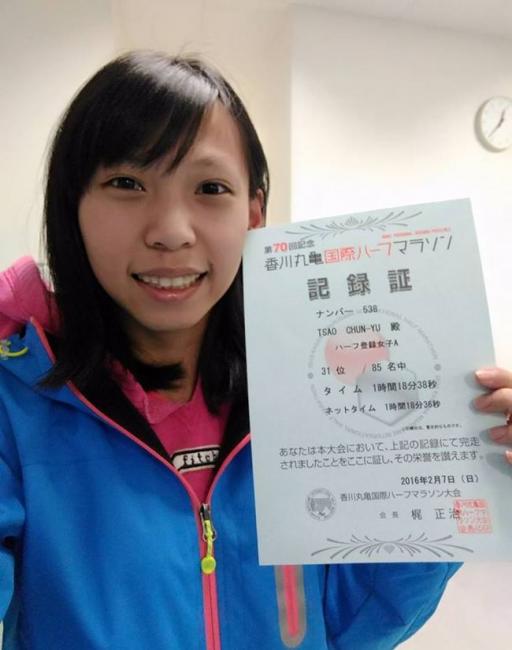 第70回記念
香川丸亀国際ハーフマラソン
記録証
ナンバー 538
TSAO CHUN-YU 殿
ハーフ登録女子A
31 位 / 85 名中
タイム 1時間18分38秒
ネットタイム 1時間18分36秒
あなたは本大会において、上記の記録にて完走
されましたことをここに証し、その栄誉を讃えます。
2016年2月7日(日)
香川丸亀国際ハーフマラソン大会
会長 梶 正治
fitch